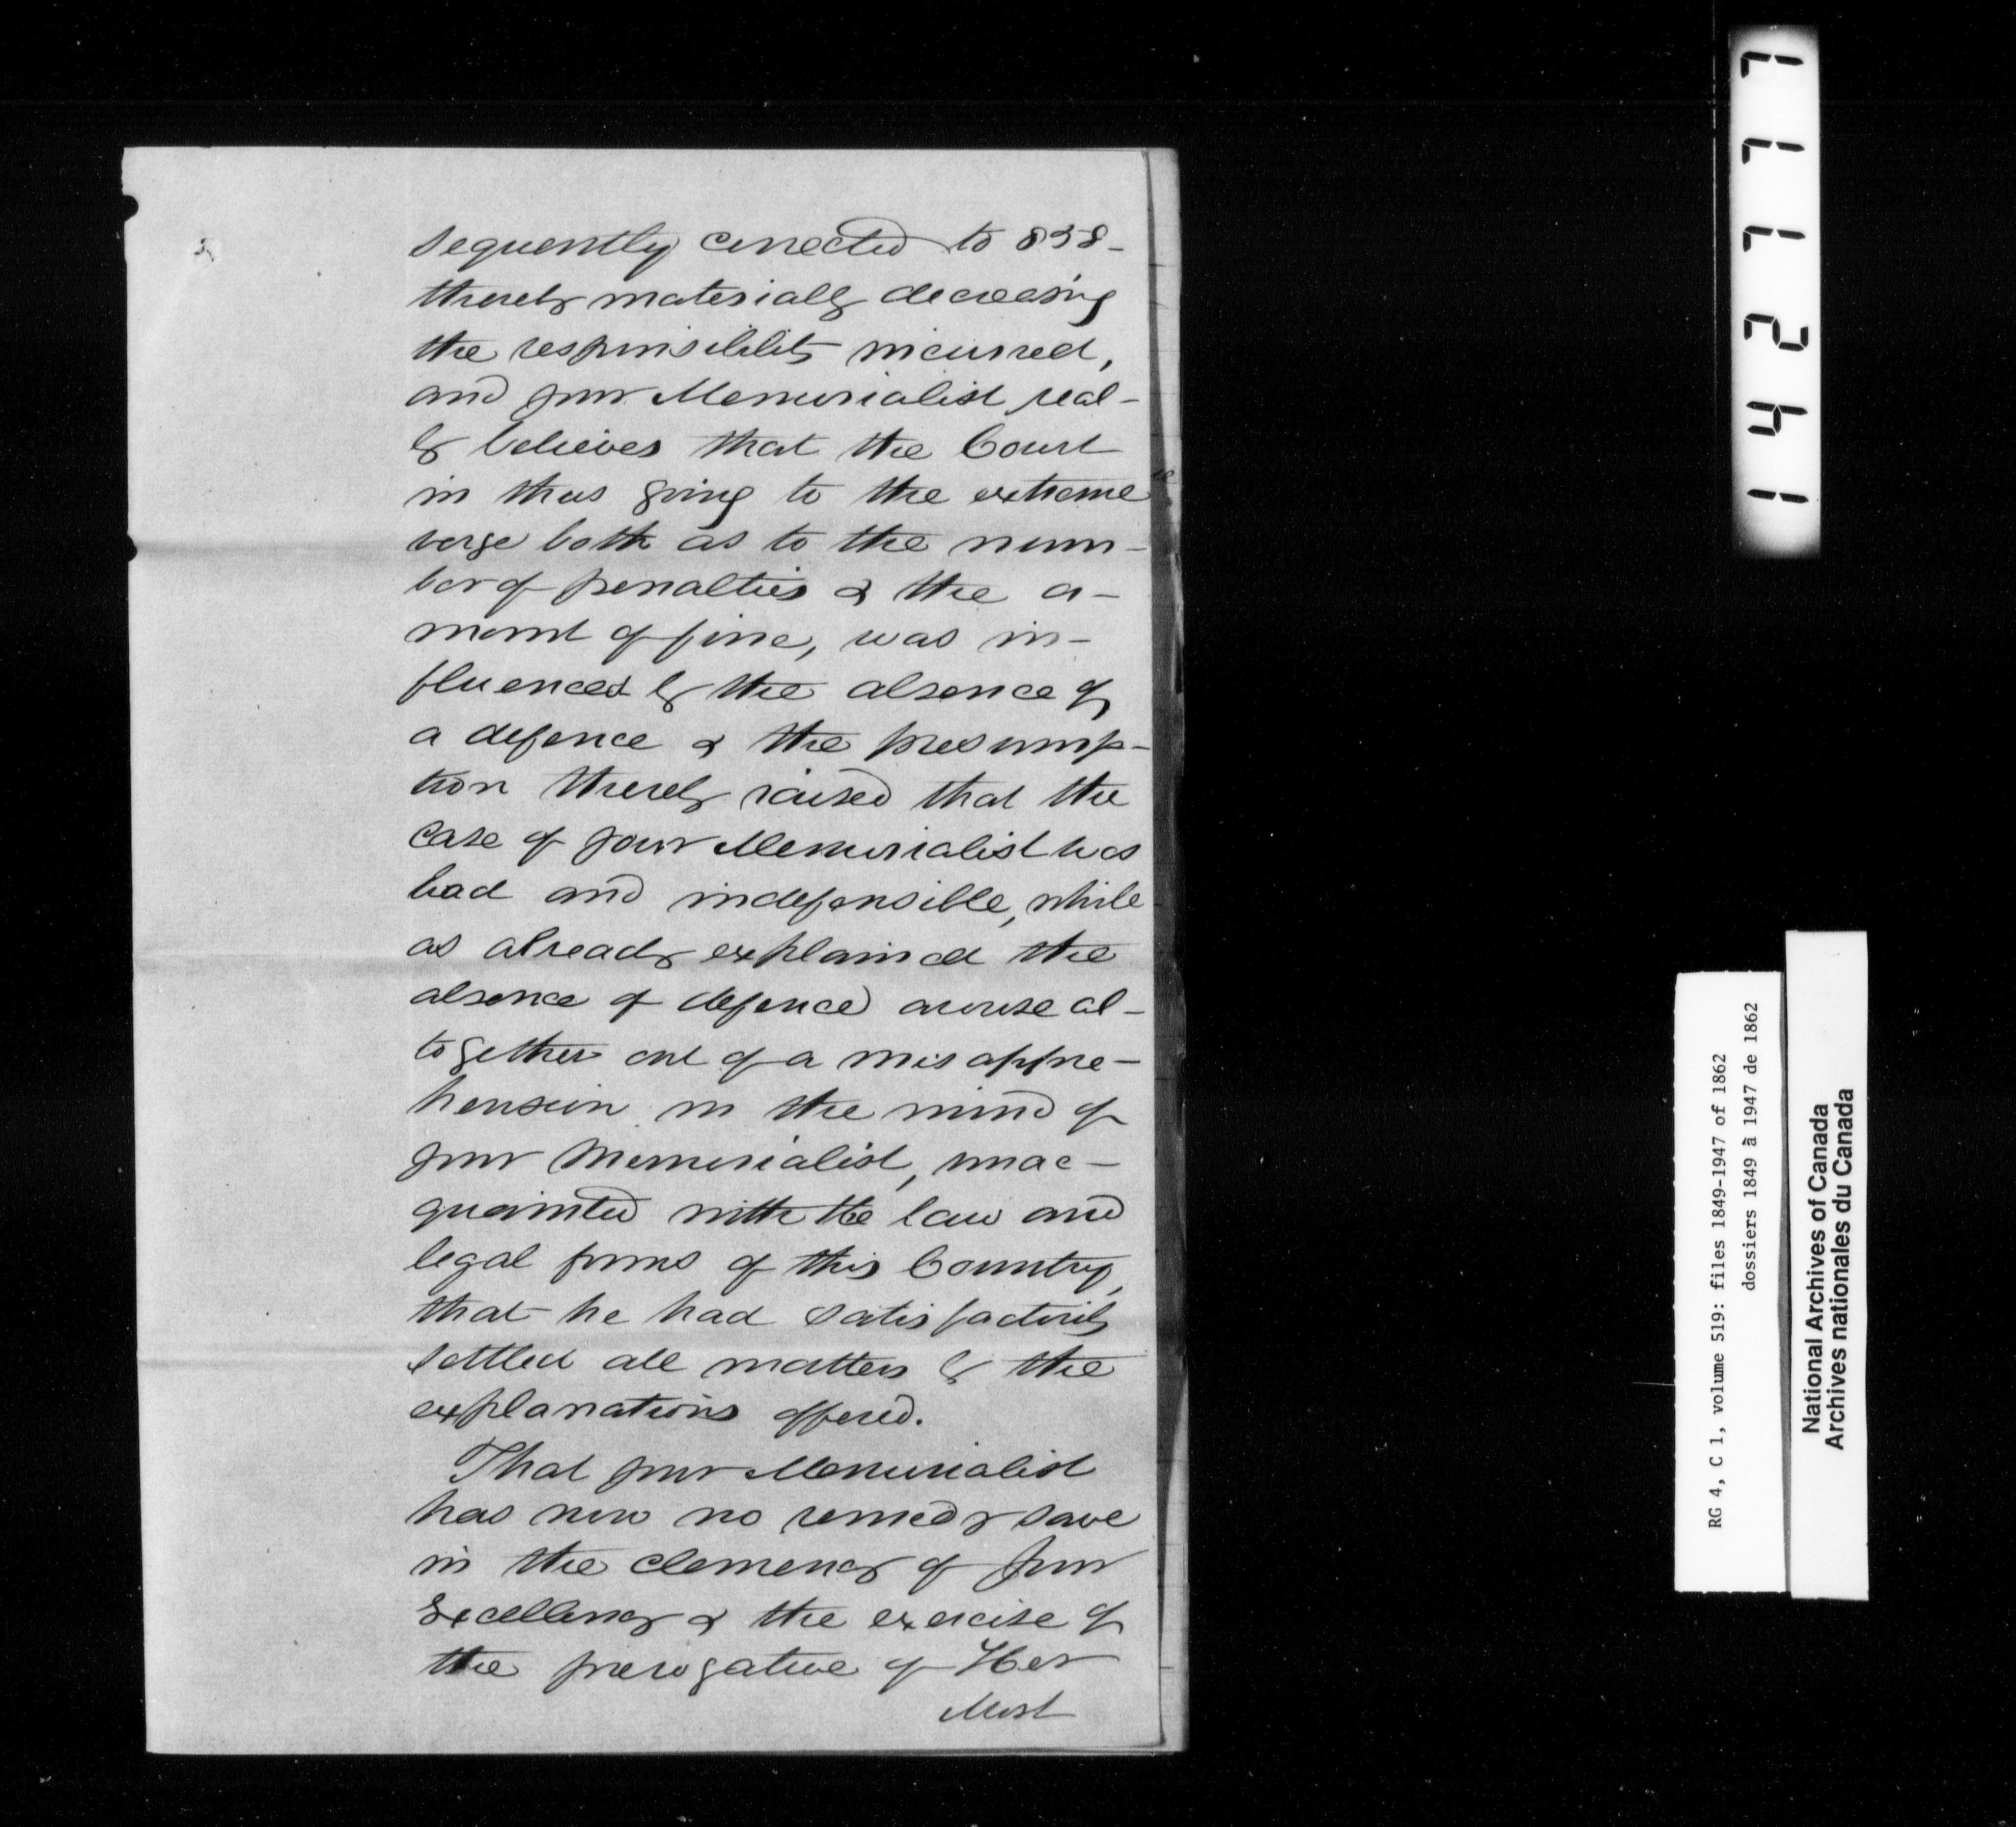 sequently corrected to 838-
thereby materially decreasing
the responsibility incurred,
and your Memorialist real-
ly believes that the Court
in thus going to the extreme
verge both as to the num-
ber of penalties & the a-
mount of fine, was in-
fluenced by the absence of
a defence & the presump-
tion thereby raised that the
case of your Memorialist was
bad and indefensible, while
as already explained the
absence of defence arose al-
together out of a misappre-
hension in the mind of
your Memorialist, unac-
quainted with the law and
legal forms of this Country,
that he had satisfactorily
settled all matters by the
explanations offered.
That your Memorialist
has now no remedy save
in the clemency of Your
Excellency & the exercise of
the prerogative of Her
Most
142777
RG 4, C 1, volume 519: files 1849-1947 of 1862
dossiers 1849 à 1947 de 1862
National Archives of Canada
Archives nationales du Canada